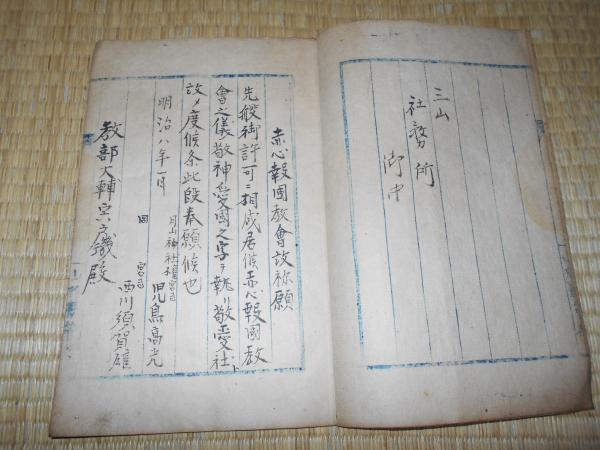 三山
社務所
御中
赤心報國教會改称願
先般御許可ニ相成居候赤心報國教
會之儀敬神愛國之字ヲ執リ敬愛社ト
改メ度候条此段奉願候也
明治八年一月
月山神社権宮司 児島高光
同 宮司 西川須賀雄
教部大輔宍戸璣殿